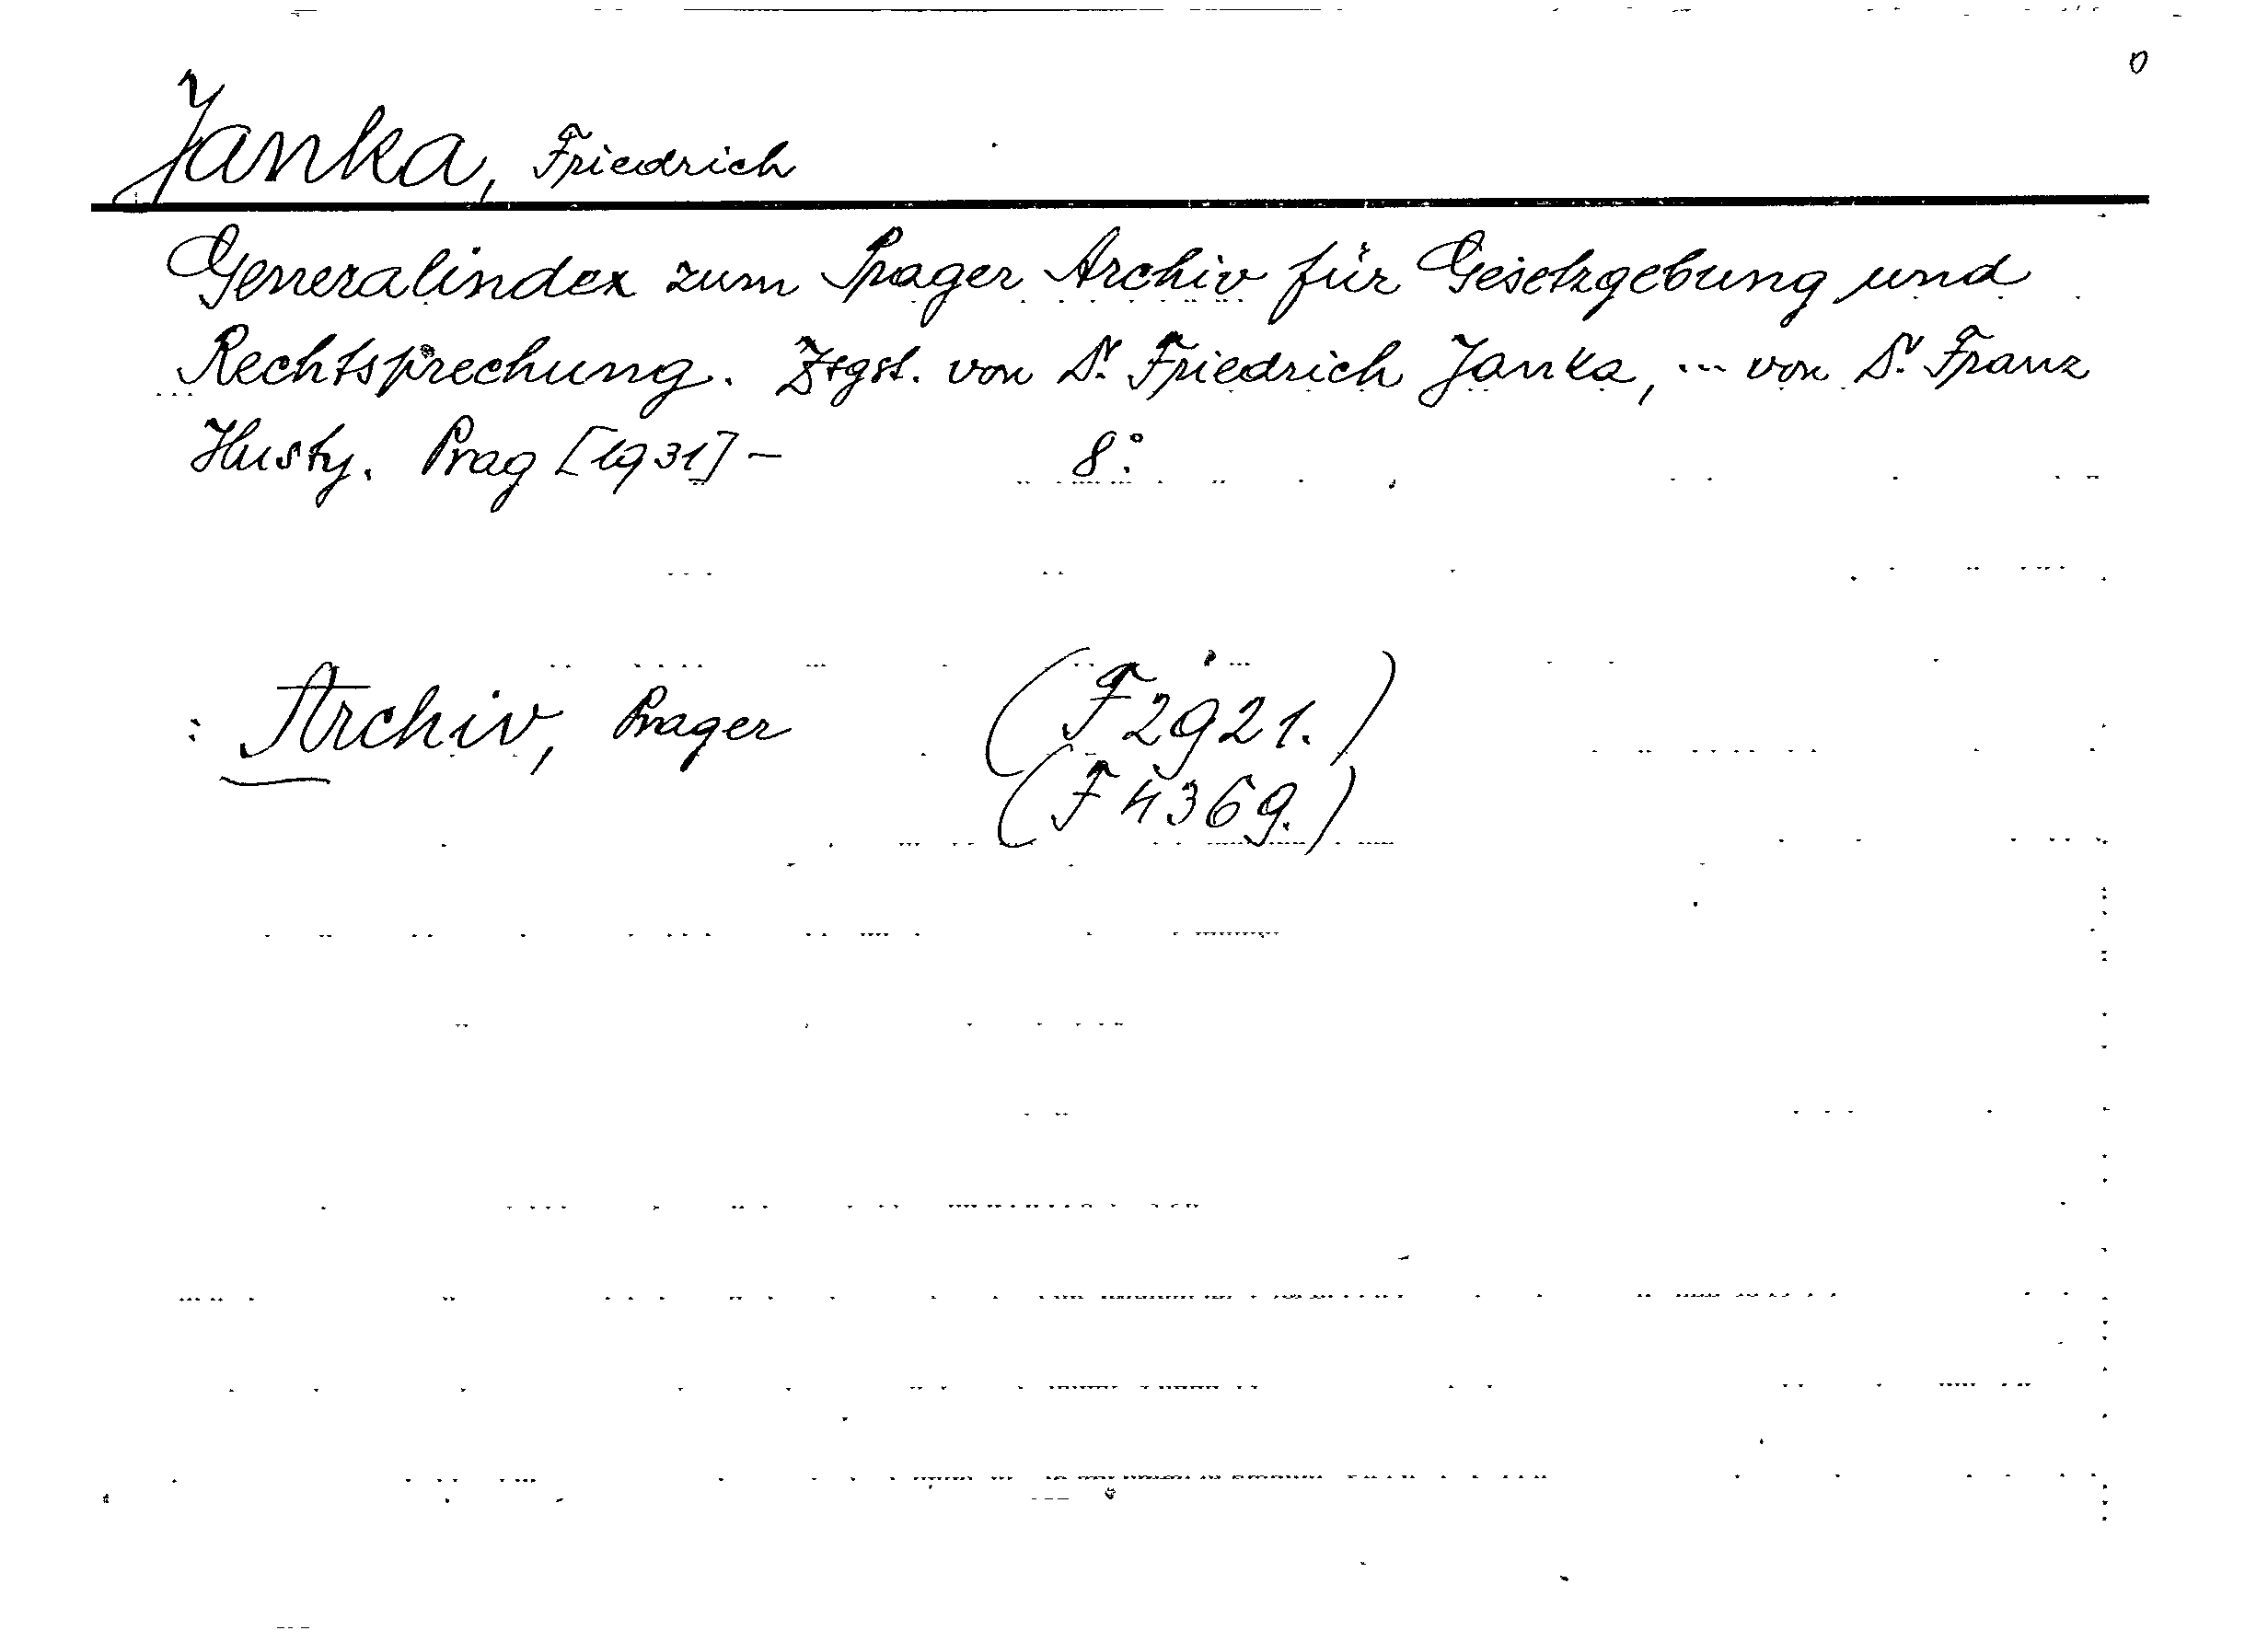 0
Janka, Friedrich
Generalindex zum Prager Archiv für Gesetzgebung und
Rechtsprechung. Zsgst. von Dr. Friedrich Janka, ... von Dr. Franz
Husty. Prag [1931] – 8°.
: Archiv, Prager (F 2921.)
(F 4369.)